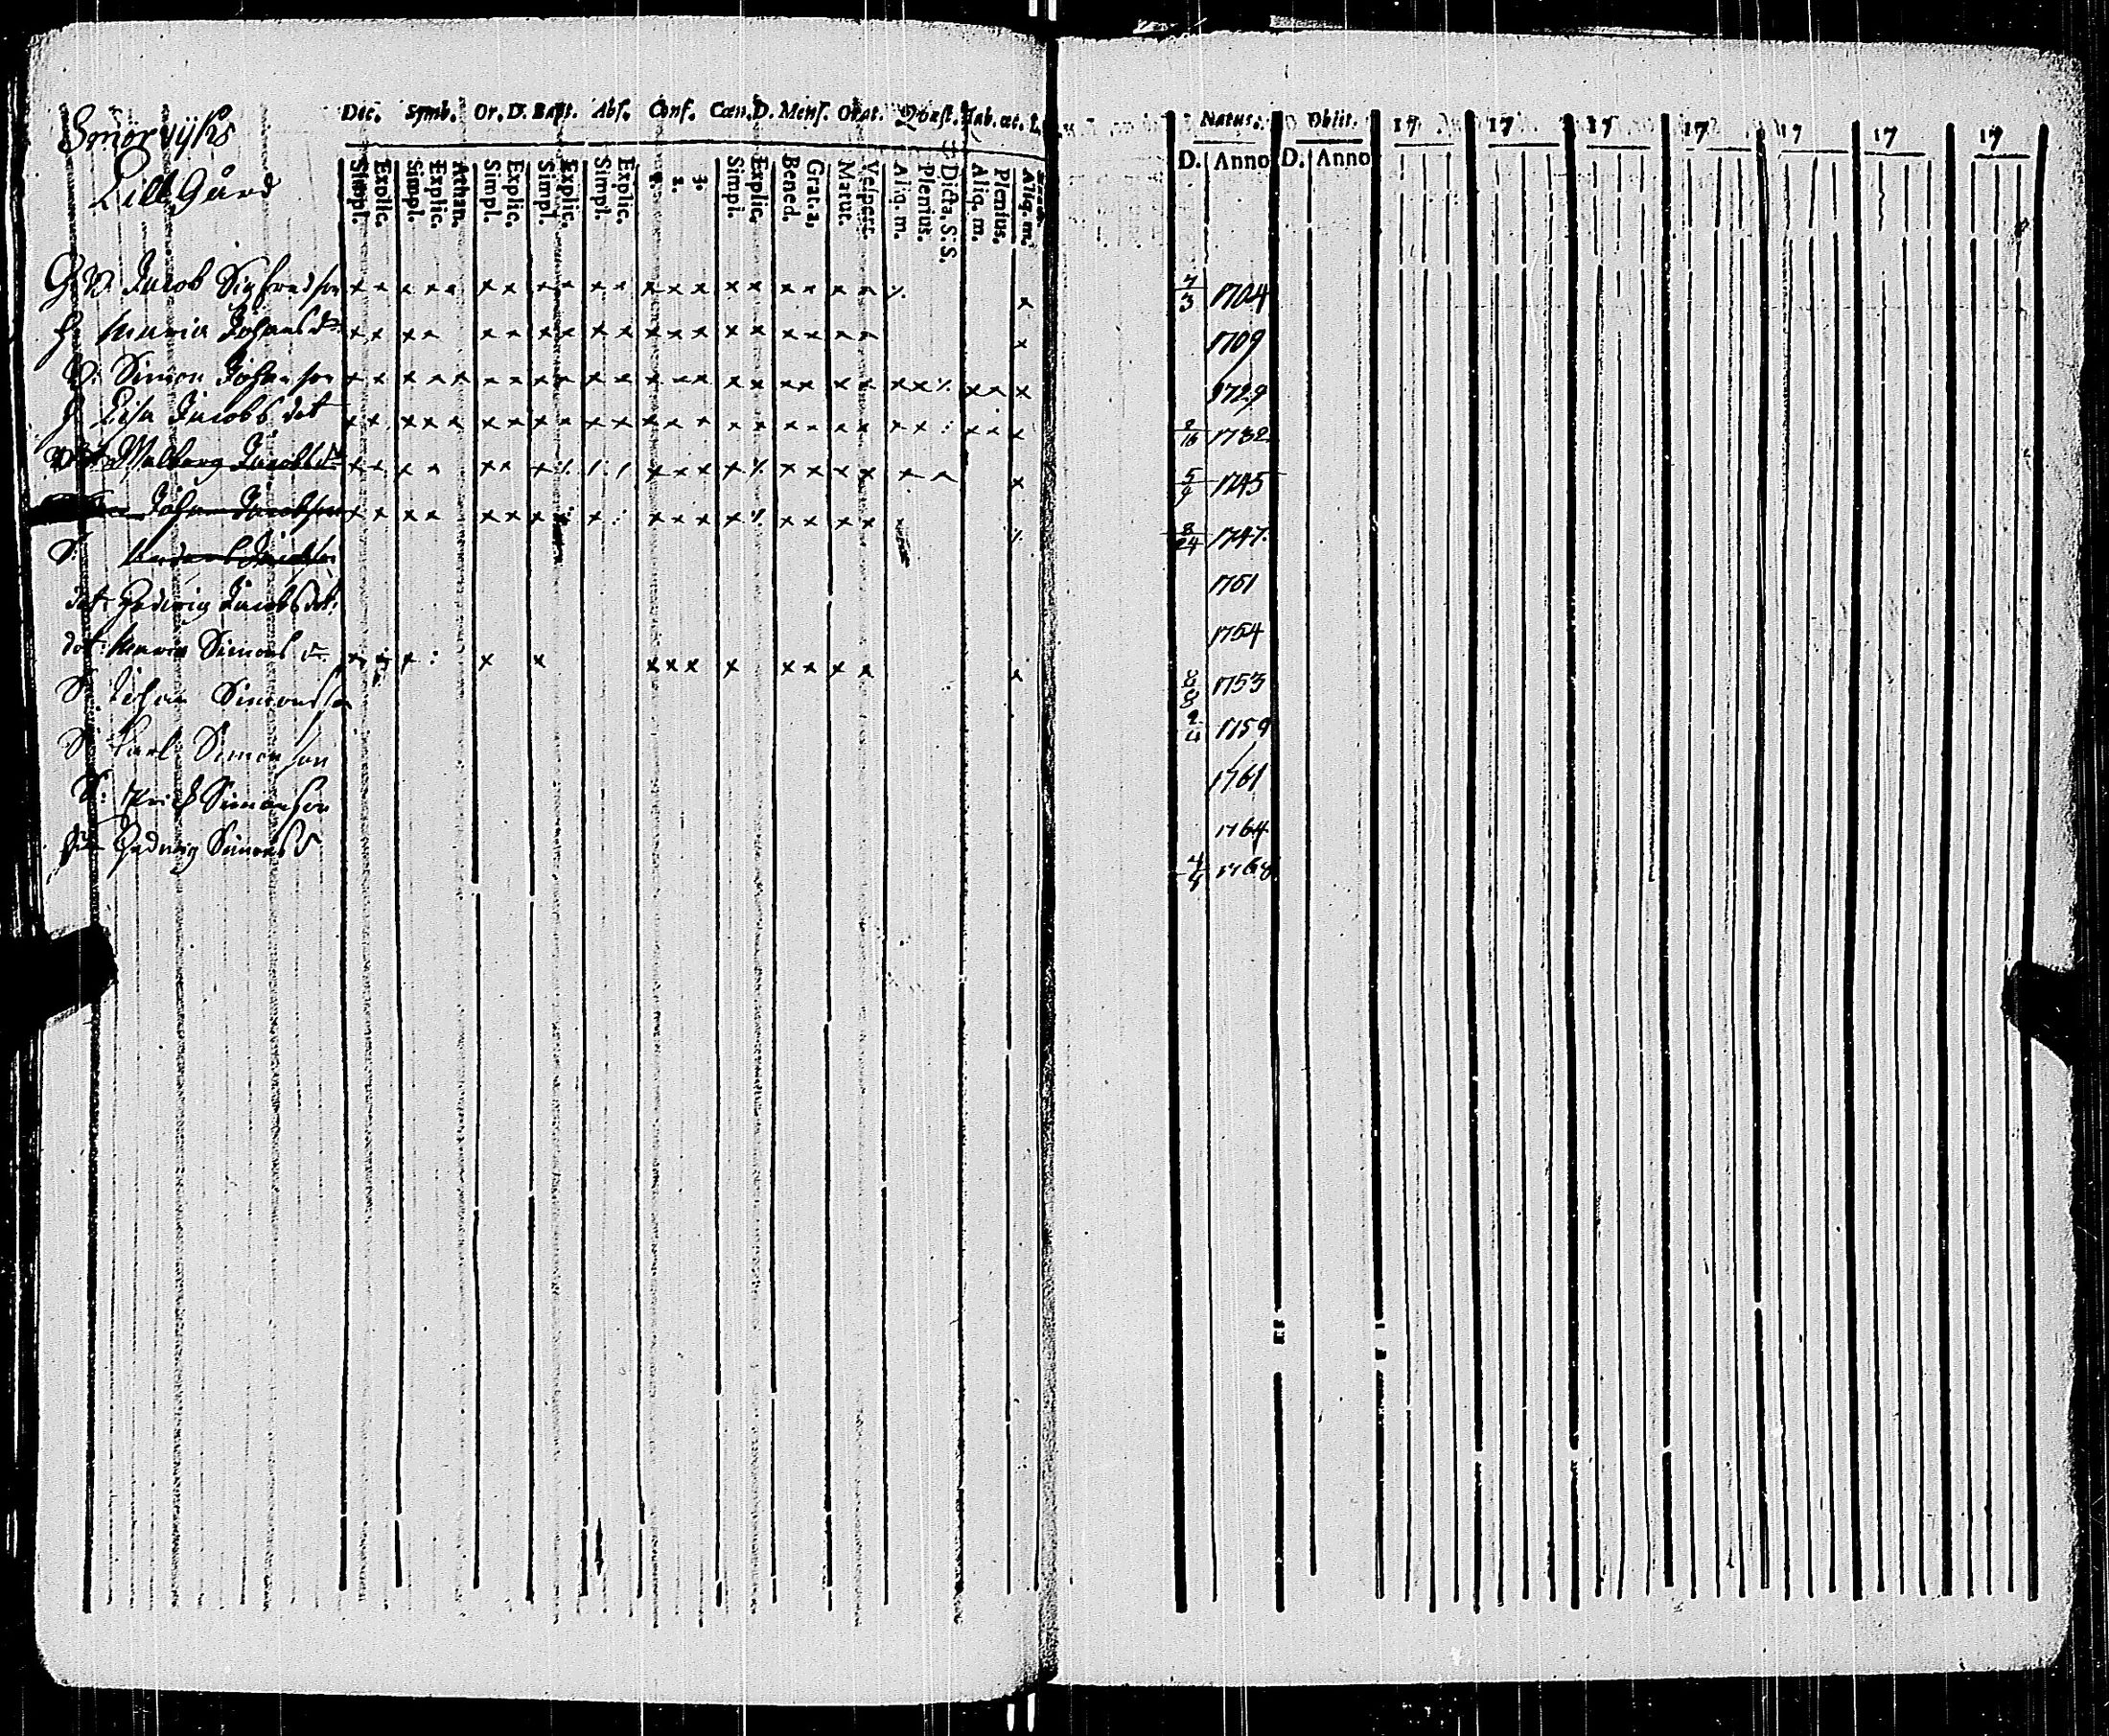 Smörvijks
Lill Gård
Dec. Symb. Or. D. Bapt. Abs. Conf. Cœn. D. Mens. Orat. Quæst. Tab. œc.
Simpl. Explic. Simpl. Explic. Athan. Simpl. Explic. Simpl. Explic. Simpl. Explic. 1. 2. 3. Simpl. Explic. Bened. Grat. a. Matut. Vesper. Aliq. m. Plenius. Dicta. S. S. Aliq. m. Plenius. Aliq. m.
Natus. Obiit. 17 17 17 17 17 17 17
D. Anno D. Anno
Jacob Sigfredson 7/3 1704
H Maria Johansd 1709
Simon Johanson 1729
H Lisa Jacobs dot 1732
Walborg Jacobsd 1745
Johan Jacobson 8/24 1747
S: 1751
dot: Hedwig Jacobsdot: 1754
dot: Maria Simons d 1753
S: Johan Simonsson 2/4 1759
S: Carl Simonson 1761
S: Erich Simonson 1764
Hedwig Simons d 1768